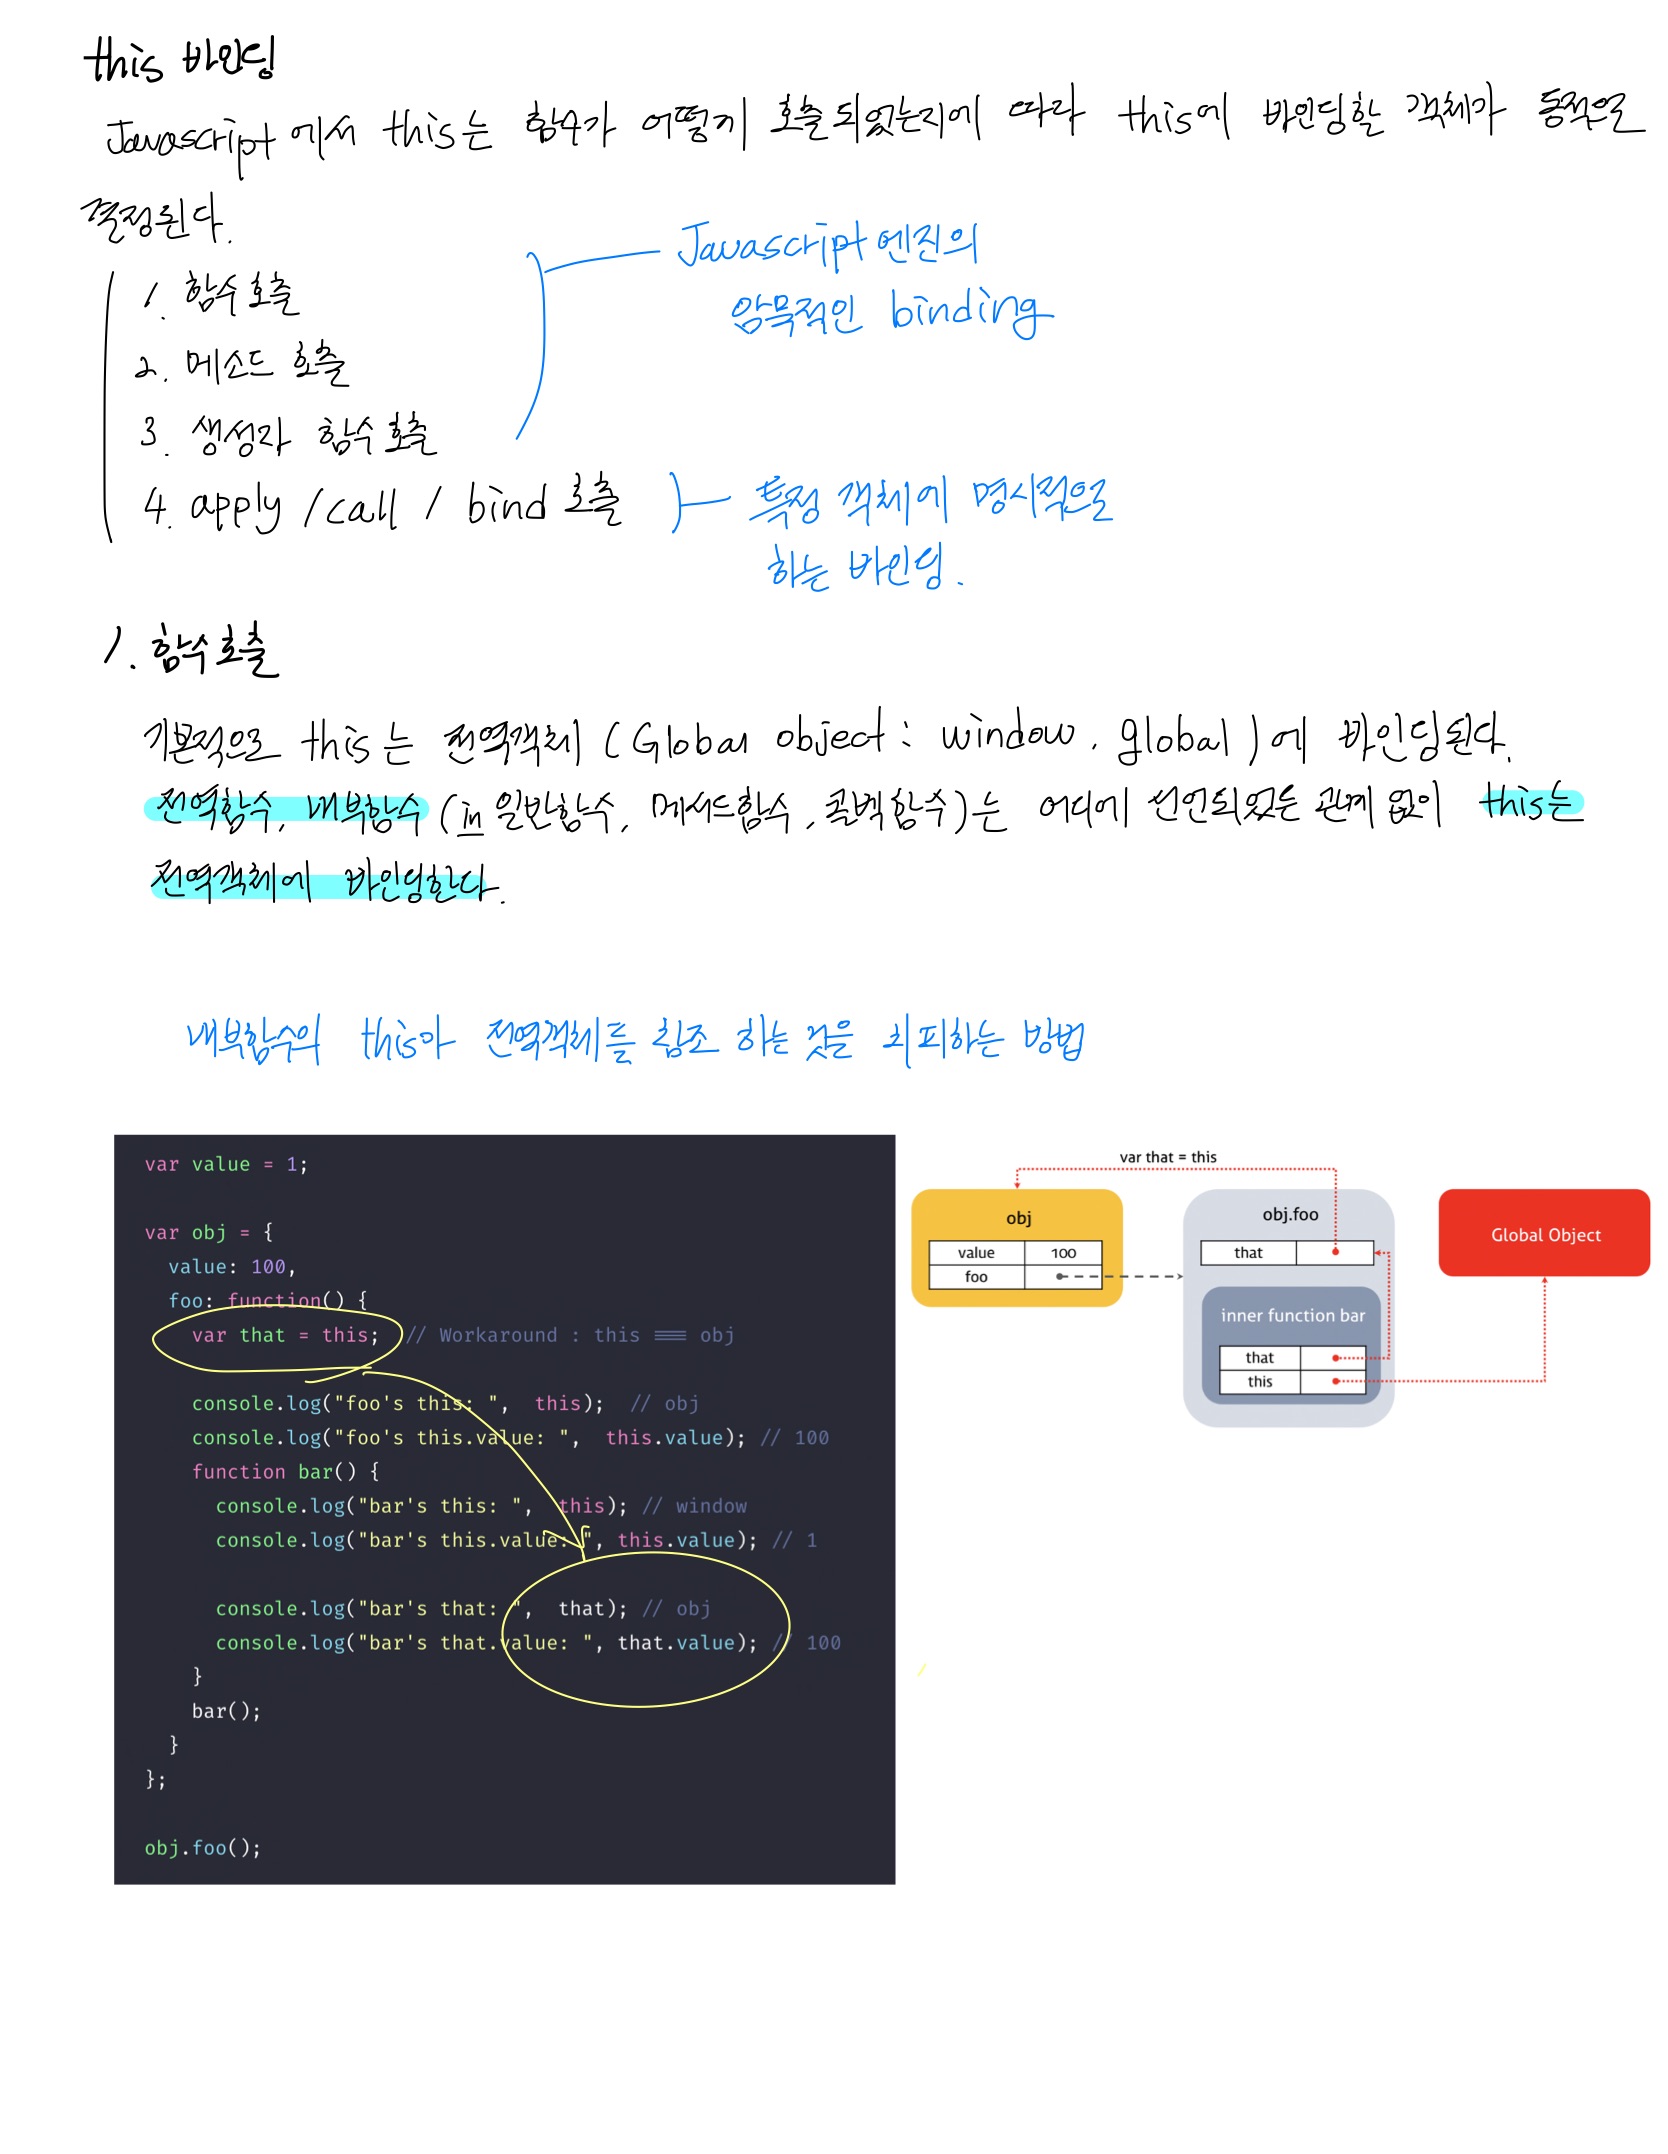 this 바인딩
Javascript에서 this는 함수가 어떻게 호출되었는지에 따라 this에 바인딩할 객체가 동적으로
결정된다.
1. 함수호출
2. 메소드 호출
3. 생성자 함수 호출
4. apply / call / bind 호출
Javascript 엔진의
암묵적인 binding
특정 객체에 명시적으로
하는 바인딩.
1. 함수호출
기본적으로 this는 전역객체 (Global object : window, global)에 바인딩된다.
전역함수, 내부함수 (in 일반함수, 메서드함수, 콜백함수)는 어디에 선언되었든 관계 없이 this는
전역객체에 바인딩한다.
내부함수의 this가 전역객체를 참조 하는 것을 회피하는 방법
var value = 1;
var obj = {
value: 100,
foo: function() {
var that = this; // Workaround : this === obj
console.log("foo's this: ", this); // obj
console.log("foo's this.value: ", this.value); // 100
function bar() {
console.log("bar's this: ", this); // window
console.log("bar's this.value: ", this.value); // 1
console.log("bar's that: ", that); // obj
console.log("bar's that.value: ", that.value); // 100
}
bar();
}
};
obj.foo();
var that = this
obj
value 100
foo
obj.foo
that
inner function bar
that
this
Global Object